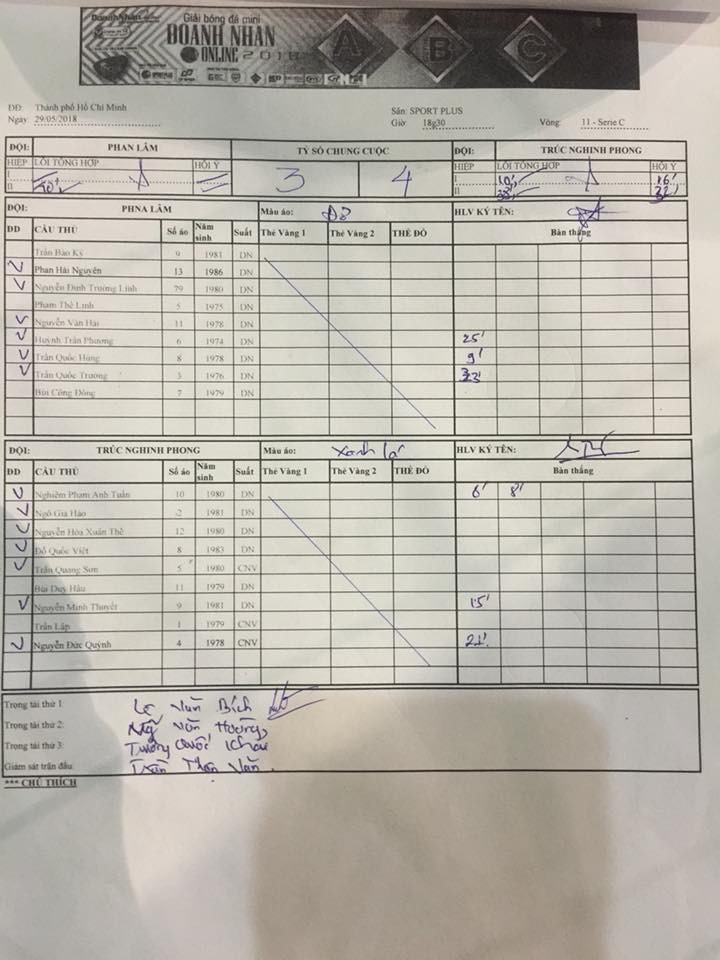 Giải bóng đá mini
DOANH NHÂN
ONLINE 2018
A B C
DĐ: Thành phố Hồ Chí Minh Sân: SPORT PLUS
Ngày: 29/05/2018 Giờ: 18g30 Vòng: 11 - Serie C
ĐỘI: PHAN LÂM TỶ SỐ CHUNG CUỘC ĐỘI: TRÚC NGHINH PHONG
HIỆP LỖI TỔNG HỢP HỘI Ý 3 4 HIỆP LỖI TỔNG HỢP HỘI Ý
I I 10' 16'
II II 33' 32'
ĐỘI: PHNA LÂM Màu áo: Đỏ HLV KÝ TÊN:
DD CẦU THỦ Số áo Năm sinh Suất Thẻ Vàng 1 Thẻ Vàng 2 THẺ ĐỎ Bàn thắng
Trần Bảo Kỳ 9 1981 DN
Phan Hải Nguyên 13 1986 DN
Nguyễn Đình Trường Linh 79 1980 DN
Phạm Thế Linh 5 1975 DN
Nguyễn Văn Hải 11 1978 DN
Huỳnh Trần Phương 6 1974 DN 25'
Trần Quốc Hùng 8 1978 DN 9'
Trần Quốc Trường 3 1976 DN 33'
Bùi Công Đông 7 1979 DN
ĐỘI: TRÚC NGHINH PHONG Màu áo: Xanh lá HLV KÝ TÊN:
DD CẦU THỦ Số áo Năm sinh Suất Thẻ Vàng 1 Thẻ Vàng 2 THẺ ĐỎ Bàn thắng
Nghiêm Phạm Anh Tuấn 10 1980 DN 6' 8'
Ngô Gia Hào 2 1981 DN
Nguyễn Hòa Xuân Thê 12 1980 DN
Đỗ Quốc Việt 8 1983 DN
Trần Quang Sơn 5 1980 CNV
Bùi Duy Hậu 11 1979 DN
Nguyễn Minh Thuyết 9 1981 DN 15'
Trần Lập 1 1979 CNV
Nguyễn Đức Quỳnh 4 1978 CNV 21'
Trọng tài thứ 1: Lê Văn Bích
Trọng tài thứ 2: Văn Hường
Trọng tài thứ 3: Trương Quốc Khai
Giám sát trận đấu: Trần Văn
*** CHÚ THÍCH